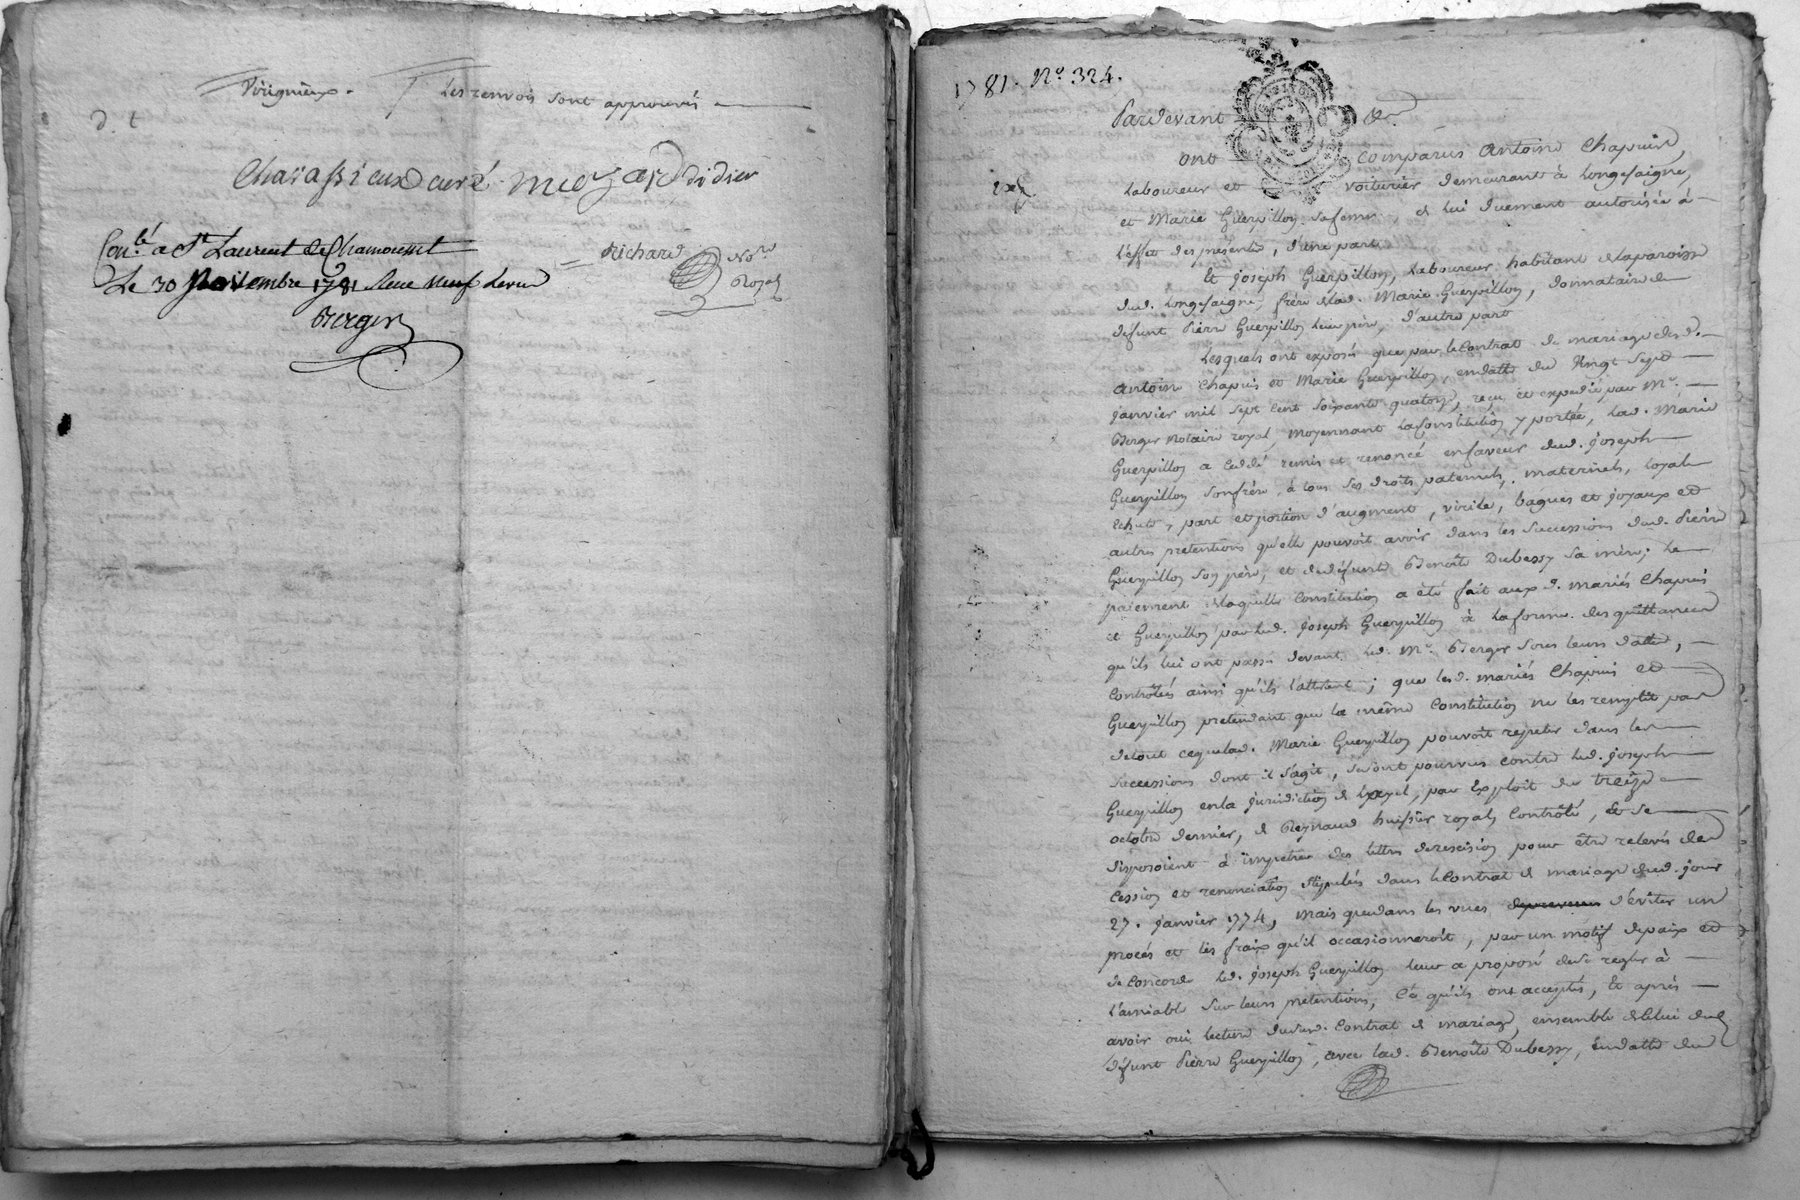 Virignieux. Les renvois sont approuvés
D. t
Charassieux curé didier
Con.lé a St Laurent de Chamousset
Richard No.re
Le 30 Novembre 1781
Royal
Berger
1781. No. 324.
Pardevant &c.
ont comparus Antoine Chapuis,
Laboureur et voiturier demeurant à Longesaigne,
et Marie Guerpillon sa femme, de lui duement autorisée à
l'effet des présentes, d'une part
Et joseph Guerpillon, Laboureur habitant de la paroisse
dud. Longesaigne, frère de lad. Marie Guerpillon, donnataire de
défunt Pierre Guerpillon leur père, d'autre part
Lesquels ont exposé que par le Contrat de mariage desd.
Antoine Chapuis et Marie Guerpillon, en datte du Vingt Sept
janvier mil sept cent soixante quatorze, reçu et expedié par Me.
Berger Notaire royal, moyennant la Constitution y portée, lad. Marie
Guerpillon a cedé remis et renoncé en faveur dud. joseph
Guerpillon son frère, à tous ses droits paternels, maternels, loyale
echute, part et portion d'augment, virile, bagues et joyaux et
autres pretentions qu'elle pouvoit avoir dans les Successions dud. Pierre
Guerpillon son père, et de défunte Benoîte Dubessy sa mère; Le
paiement de laquelle Constitution a été fait aux d. mariés Chapuis
et Guerpillon par led. joseph Guerpillon à la forme des quittances
qu'ils lui ont passé devant led. Me. Berger sous leurs dattes,
Controlées ainsi qu'ils l'attestent; que lesd. mariés Chapuis et
Guerpillon pretendant que la même Constitution ne les remplit pas
de tout ce que lad. Marie Guerpillon pouvoit repeter dans les
Successions dont il s'agit, se sont pourvus contre led. joseph
Guerpillon en la jurisdiction de par Exploit du treize
octobre dernier, de Reynaud huissier royal, Controlé, & se
disposoient à impetrer des lettres de rescision pour être relevés des
Cession et renonciation stipulés dans le Contrat de mariage dud. jour
27. janvier 1774, mais que dans les vues d'éviter un
procés et les fraix qu'il occasionneroit, par un motif de paix et
de Concorde led. joseph Guerpillon leur a proposé de se regler à
l'amiable sur leurs pretentions, Ce qu'ils ont accepté, et après
avoir oui lecture dud. Contrat de mariage, ensemble de Celui du
défunt Pierre Guerpillon, avec lad. Benoîte Dubessy, en datte du